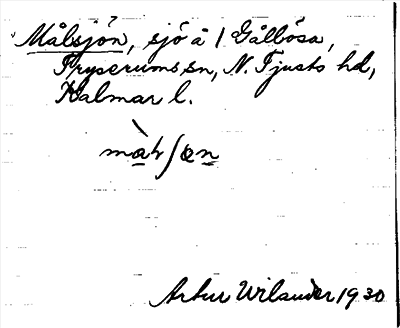 Målsjön, sjö å 1 Gållösa,
Fryserums sn, N. Tjusts hd,
Kalmar l.
Artur Wilander 1930